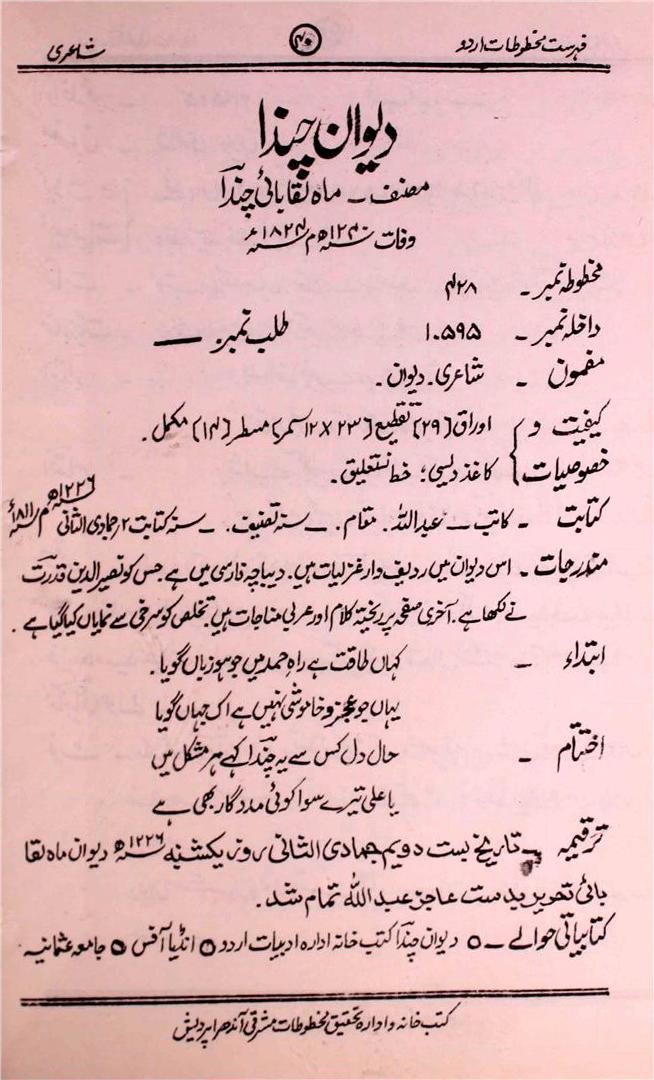 فہرست مخطوطات اردو ۴۰ شاعری
دیوان چندا
مصنف ۔ ماہ لقا بائی چندا
وفات ۱۲۴۰ھ م ۱۸۲۴ء
مخطوطہ نمبر ۔ ۴۲۸
داخلہ نمبر ۔ ۱۰۵۹۵ طلب نمبر ۔ ــــ
مضمون ۔ شاعری ۔ دیوان ۔
کیفیت و } اوراق (۲۹) تقطیع (۲۳ × ۱۲ سمر) مسطر (۱۴) مکمل ۔
خصوصیات } کاغذ دیسی؛ خط نستعلیق ۔
کتابت ۔ کاتب ــ عبداللہ ۔ مقام ۔ ــ سنہ تصنیف ۔ ــ سنہ کتابت ۲؍ جمادی الثانی ۱۲۲۶ھ م ۱۸۱۱ء
مندرجات ۔ اس دیوان میں ردیف وار غزلیات ہیں ۔ دیباچہ فارسی میں ہے جس کو نصیر الدین قدرت
نے لکھا ہے ۔ آخری صفحہ پر ریختہ کلام اور عربی مناجات ہیں تخلص کو سرخی سے نمایاں کیا گیا ہے ۔
ابتداء ۔ کہاں طاقت ہے راہِ حمد میں جو ہو زباں گویا ۔
یہاں جو عجز و خاموشی نہیں ہے اک جہاں گویا
اختتام ۔ حال دل کس سے یہ چندا کہے ہر مشکل میں
یا علی تیرے سوا کوئی مددگار بھی ہے
ترقیمہ ۔ تاریخ بست دویم جمادی الثانی روز یکشنبہ ۱۲۲۶ھ دیوان ماہ لقا
بائی تحریر بدست عاجز عبد اللہ تمام شد ۔
کتابیاتی حوالے ــ ○ دیوان چندا کتب خانہ ادارہ ادبیات اردو ○ انڈیا آفس ○ جامعہ عثمانیہ
کتب خانہ و ادارہ تحقیق مخطوطات مشرقی آندھرا پردیش